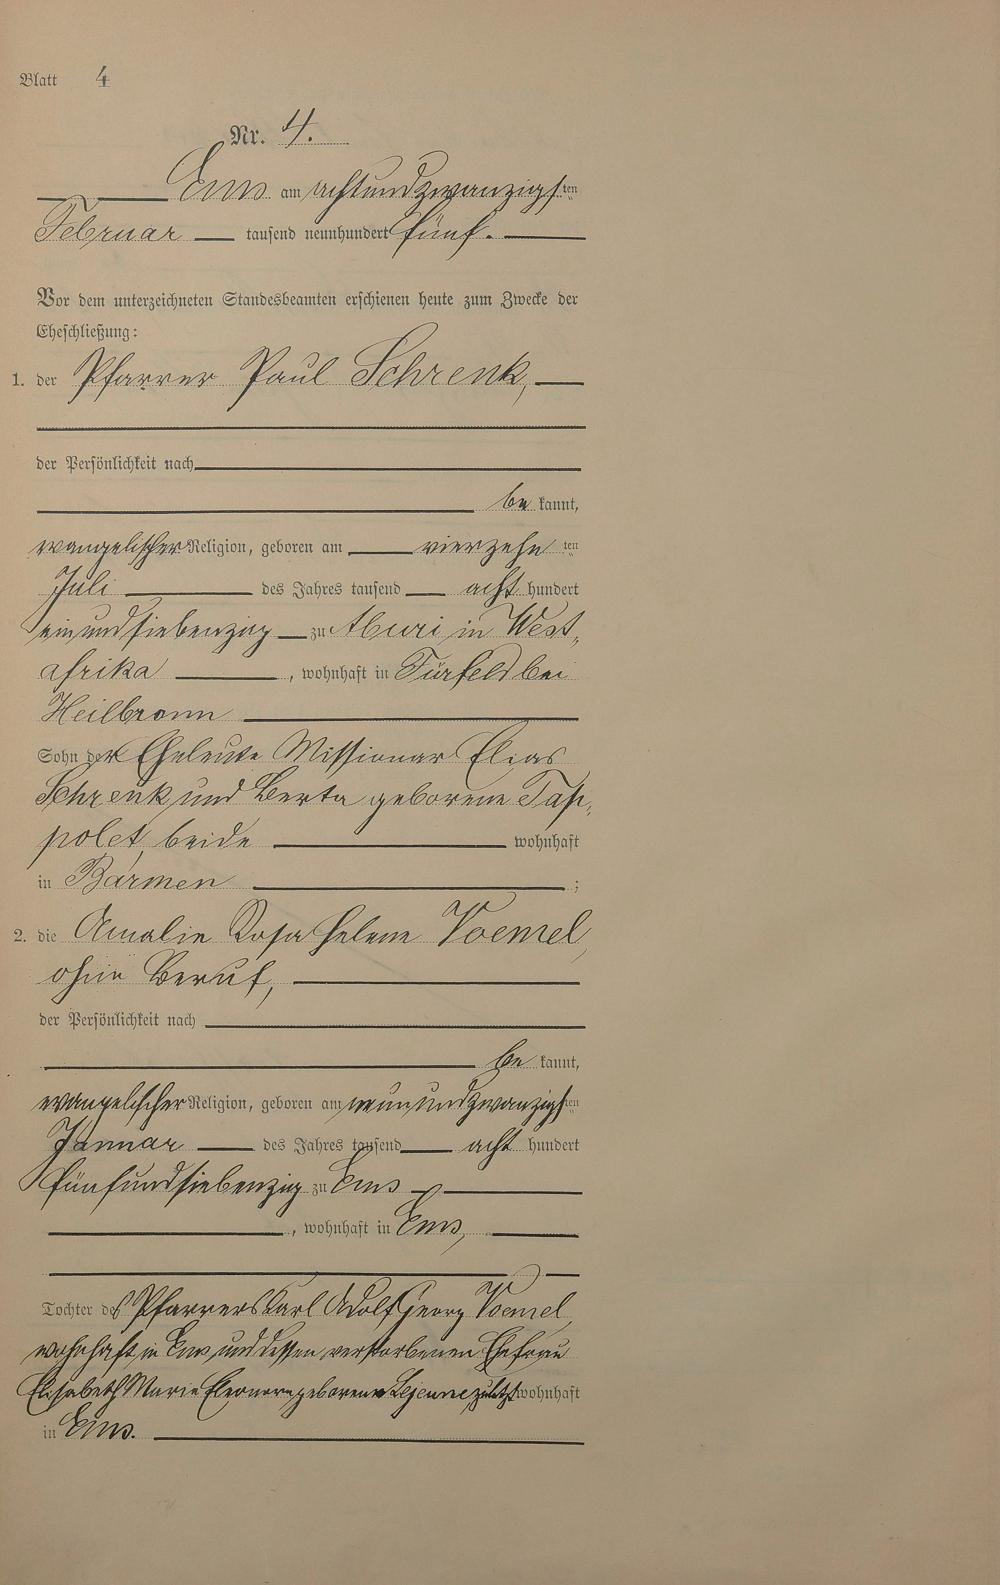 Blatt 4
Nr. 4.
Ems am achtundzwanzigsten
Februar tausend neunhundert fünf.
Vor dem unterzeichneten Standesbeamten erschienen heute zum Zwecke der
Eheschließung:
1. der Pfarrer Paul Schrenk,
der Persönlichkeit nach
be kannt,
evangelischer Religion, geboren am vierzehn ten
Juli des Jahres tausend acht hundert
einundsiebenzig zu Aburi in West-
afrika, wohnhaft in Fürfeld bei
Heilbronn
Sohn der Eheleute Missionar Elias
Schrenk und Berta geborene Tap-
polet, beide wohnhaft
in Barmen ;
2. die Amalie Rosa Helene Voemel,
ohne Beruf,
der Persönlichkeit nach
be kannt,
evangelischer Religion, geboren am neunundzwanzigsten
Januar des Jahres tausend acht hundert
fünfundsiebenzig zu Ems
, wohnhaft in Ems,
Tochter des Pfarrers Karl Adolf Georg Voemel,
wohnhaft in Ems und dessen verstorbenen Ehefrau
Elisabeth Marie Eleonore geborenen Lejeune, zuletzt wohnhaft
in Ems.